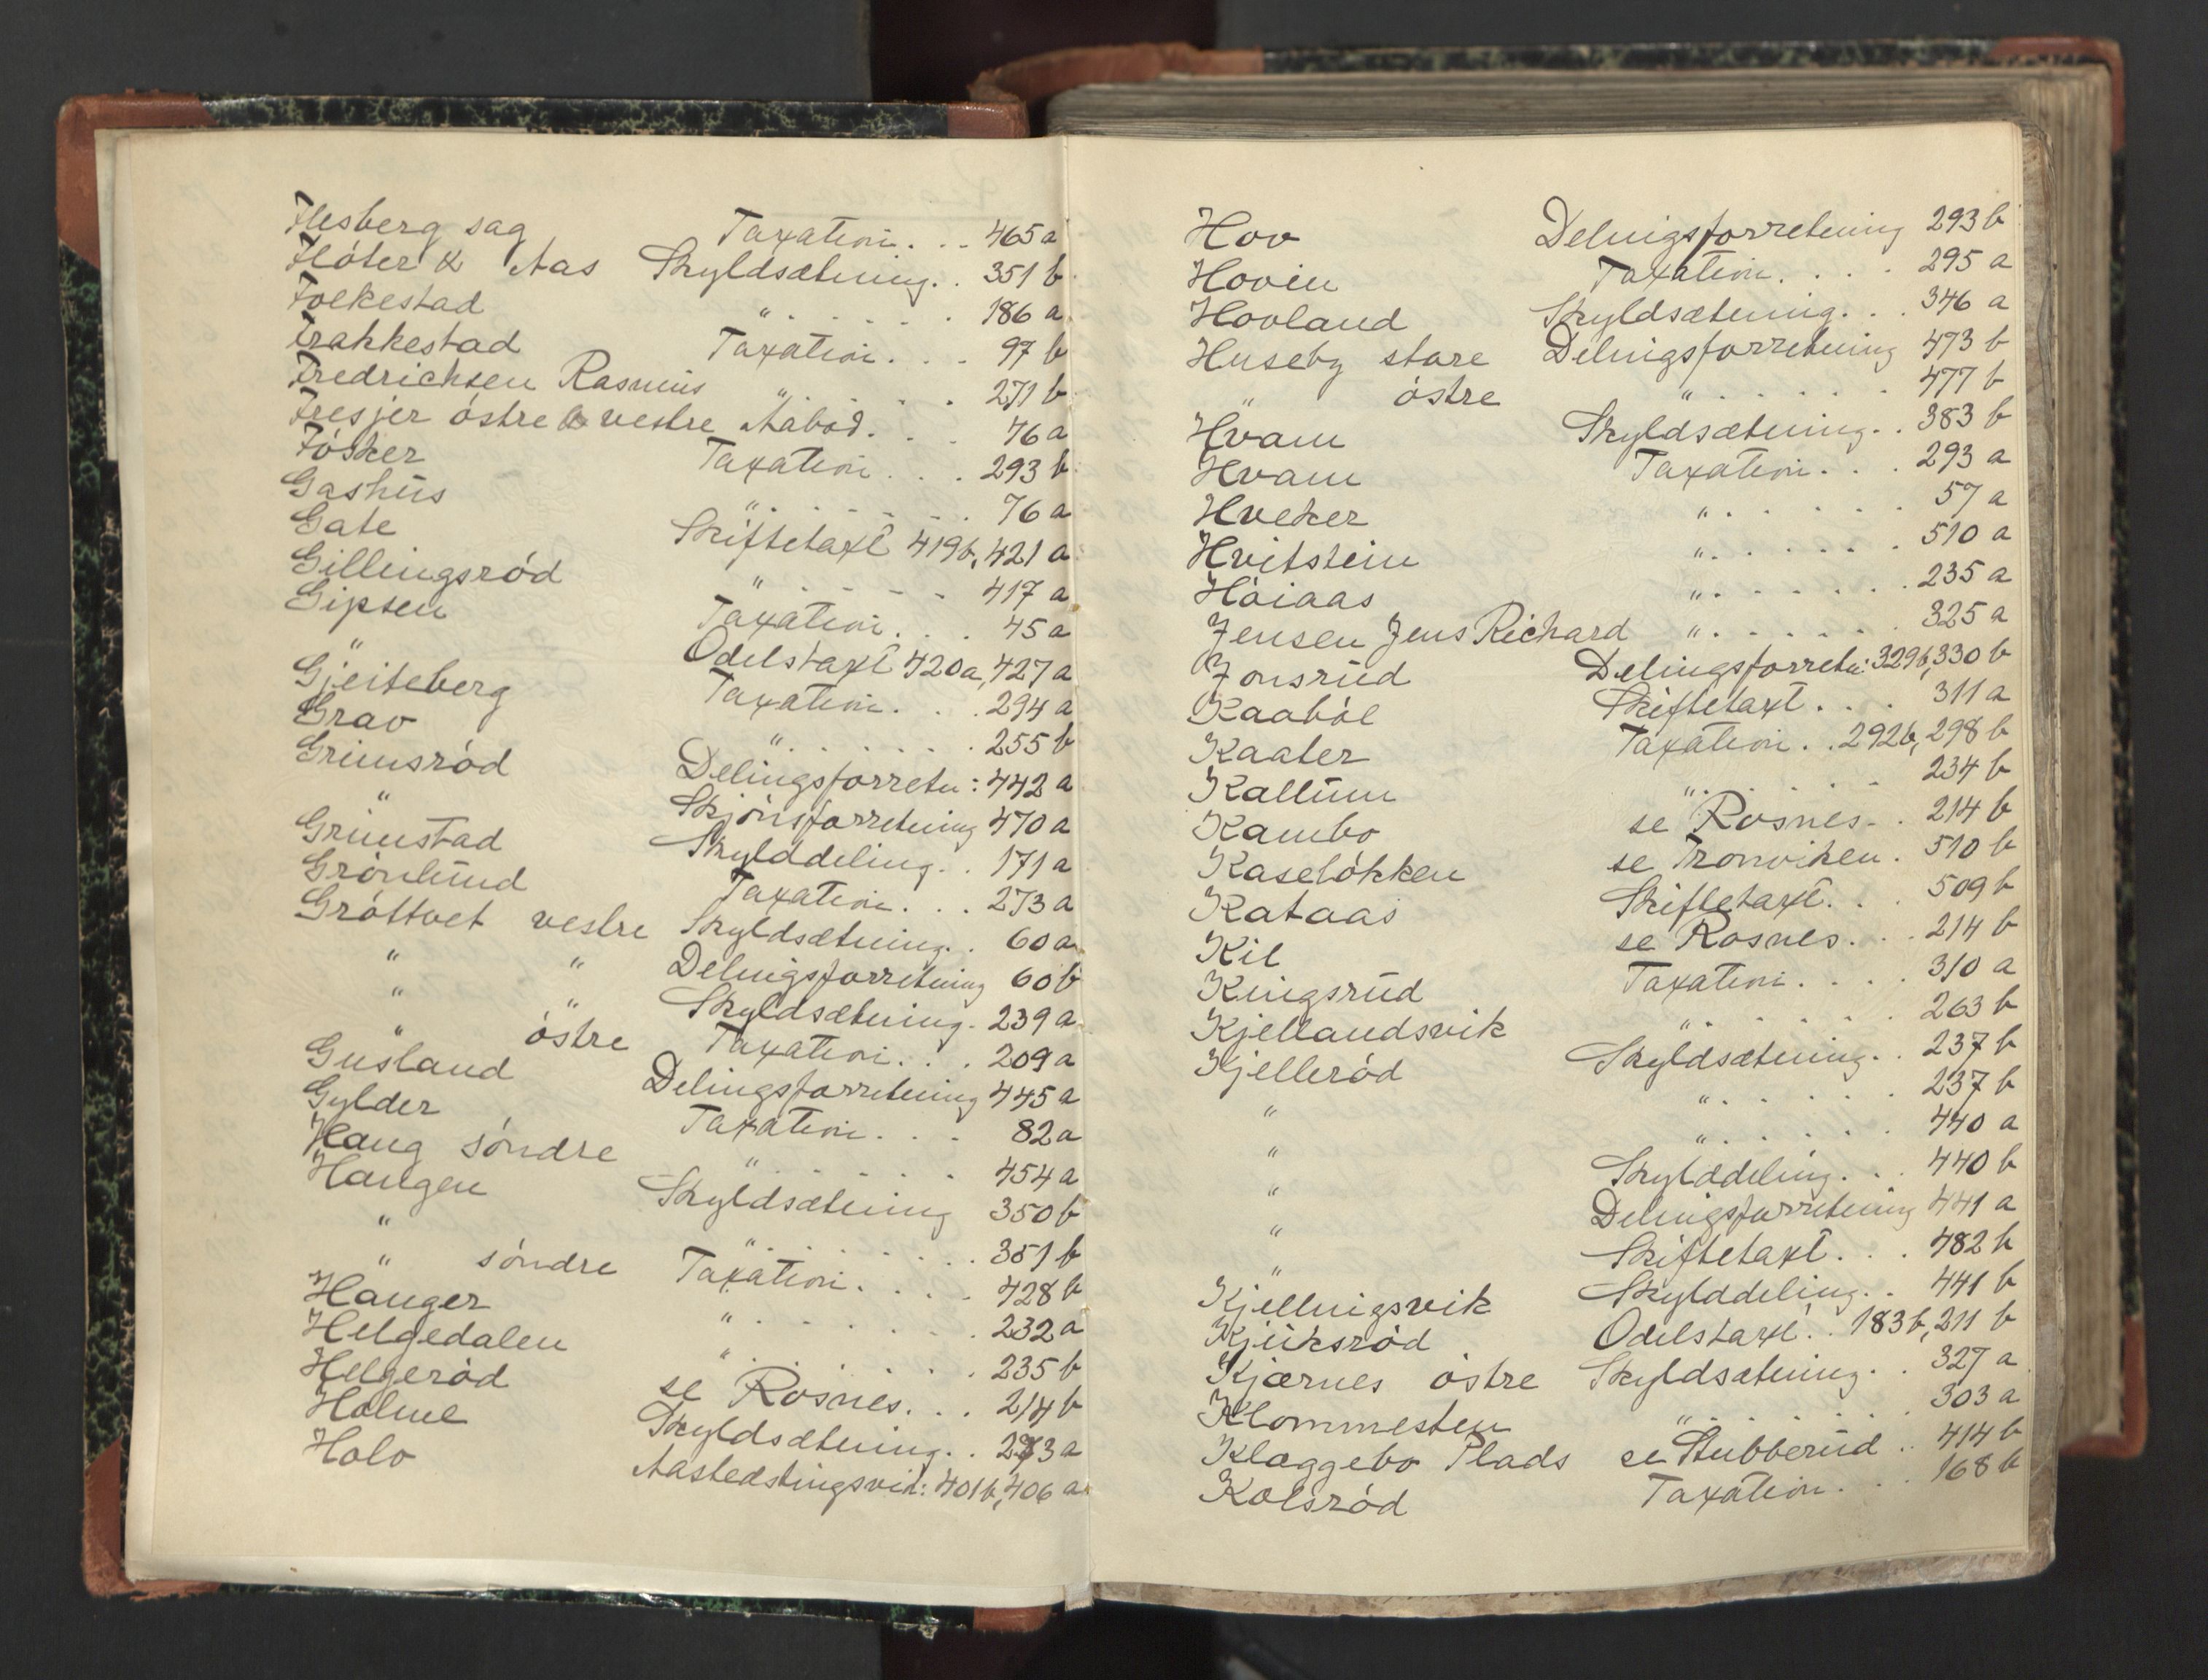 Flesberg sag Taxation. . . 465 a
Flöter & Aas Skyldsætning. . 351 b
Folkestad " . . . . . 186 a
Frakkestad Taxation. . . 97 b
Fredrichsen Rasmus " . . . 271 b
Fresjer östre & vestre Aabod. . . 76 a
Fösker Taxation. . . 293 b
Gashus " . . . . . . 76 a
Gate Skiftetaxt 419 b, 421 a
Gillingsröd " . . . . . 417 a
Gipsen Taxation. . . 45 a
" Odelstaxt 420 a, 427 a
Gjeiteberg Taxation. . . 294 a
Grav " . . . . . . 255 b
Grimsröd Delingsforretn: 442 a
" Skjönsforretning 470 a
Grimstad Skylddeling. . 171 a
Grönlund Taxation. . . 273 a
Gröttvet vestre Skyldsætning. . 60 a
" " Delingsforretning 60 b
" " Skyldsætning. 239 a
" östre Taxation. . . 209 a
Gusland Delingsforretning 445 a
Gylder Taxation. . . 82 a
Haug söndre " . . . . . 454 a
Haugen Skyldsætning 350 b
" " . . . . . . 351 b
" söndre Taxation. . . . 428 b
Hauger " . . . . . . 232 a
Helgedalen " . . . . . . 235 b
Helgeröd se Rosnes. . . 214 b
Holme Skyldsætning. . 273 a
Holo Aastedstingsvid: 401 b, 406 a
Hov Delingsforretning 293 b
Hovin Taxation. . . . 295 a
Hovland Skyldsætning. . . 346 a
Huseby store Delingsforretning 473 b
" östre " . . . . . 477 b
Hvam Skyldsætning. . 383 b
Hvam Taxation. . . 293 a
Hveker " . . . . . . 57 a
Hvitstein " . . . . . . 510 a
Höiaas " . . . . . . 235 a
Jensen Jens Richard " . . . . . . 325 a
Jonsrud Delingsforretn: 329 b, 330 b
Kaaböl Skiftetaxt. . . 311 a
Kaater Taxation. . 292 b, 298 b
Kallum " . . . . . 234 b
Kambo se Rosnes. . 214 b
Kaselökken se Tronviken. 510 b
Kataas Skiftetaxt. . . 509 b
Kil se Rosnes. . . 214 b
Kingsrud Taxation. . . . 310 a
Kjellandsvik " . . . . . 263 b
Kjelleröd Skyldsætning. . 237 b
" " . . . . . 237 b
" " . . . . . 440 a
" Skylddeling. . . 440 b
" Delingsforretning 441 a
" Skiftetaxt. . . 482 b
Kjellingsvik Skylddeling. . 441 b
Kjuksröd Odelstaxt. . 183 b, 211 b
Kjærnes östre Skyldsætning. . 327 a
Klommesten " . . . . . 303 a
Klæggebo Plads se Stubberud . . 414 b
Kolsröd Taxation. . . 168 b